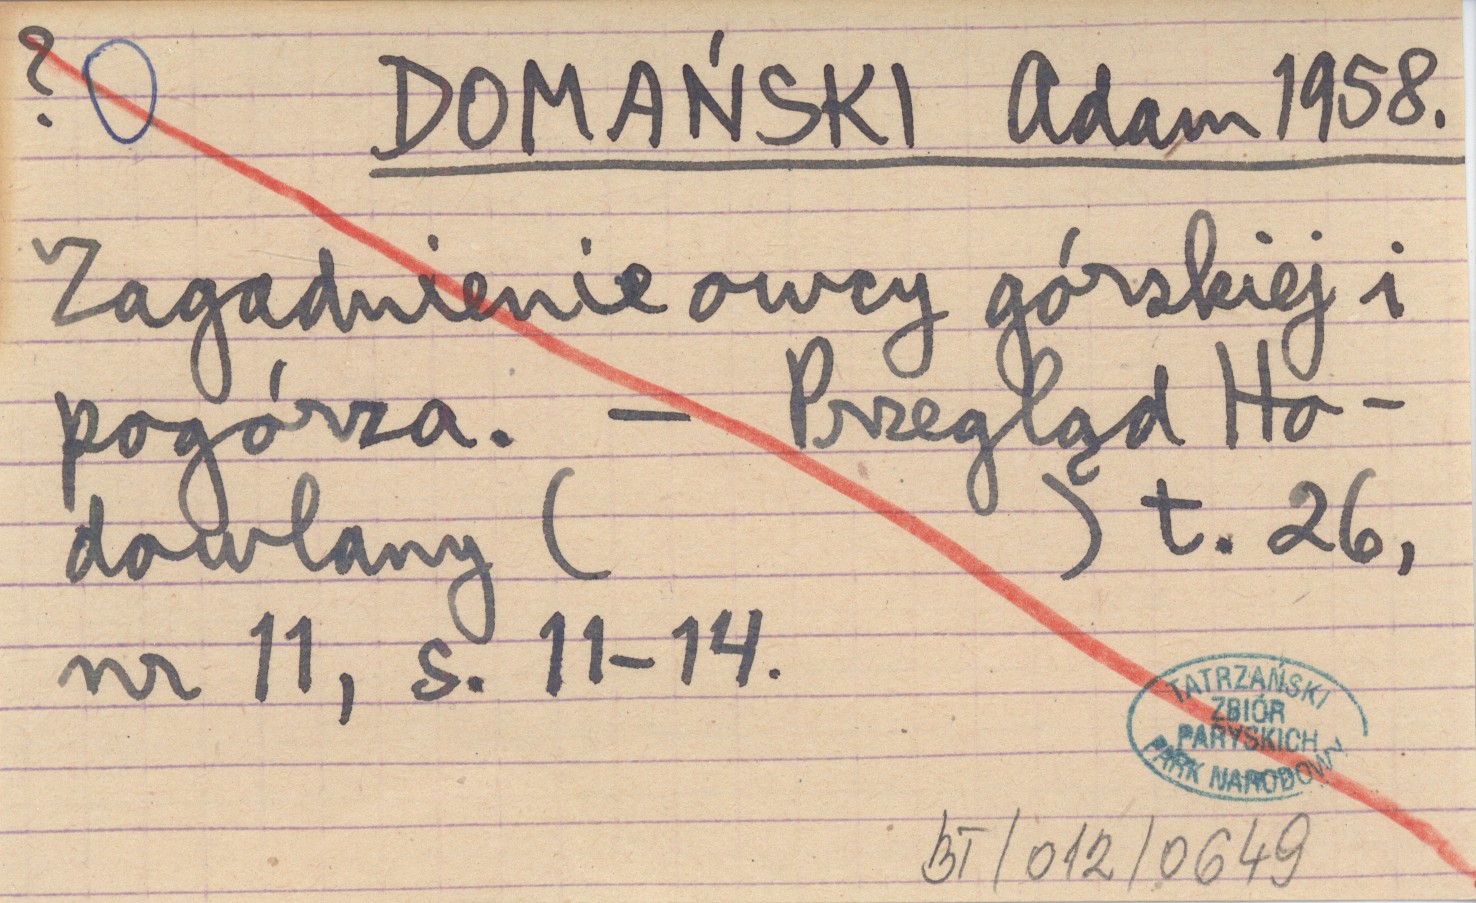 ?
DOMAŃSKI Adam 1958.
Zagadnienie owcy górskiej i
pogórza. — Przegląd Ho-
dowlany ( ) t. 26,
nr 11, s. 11-14.
TATRZAŃSKI
ZBIÓR
PARYSKICH
PARK NARODOWY
BT/012/0649